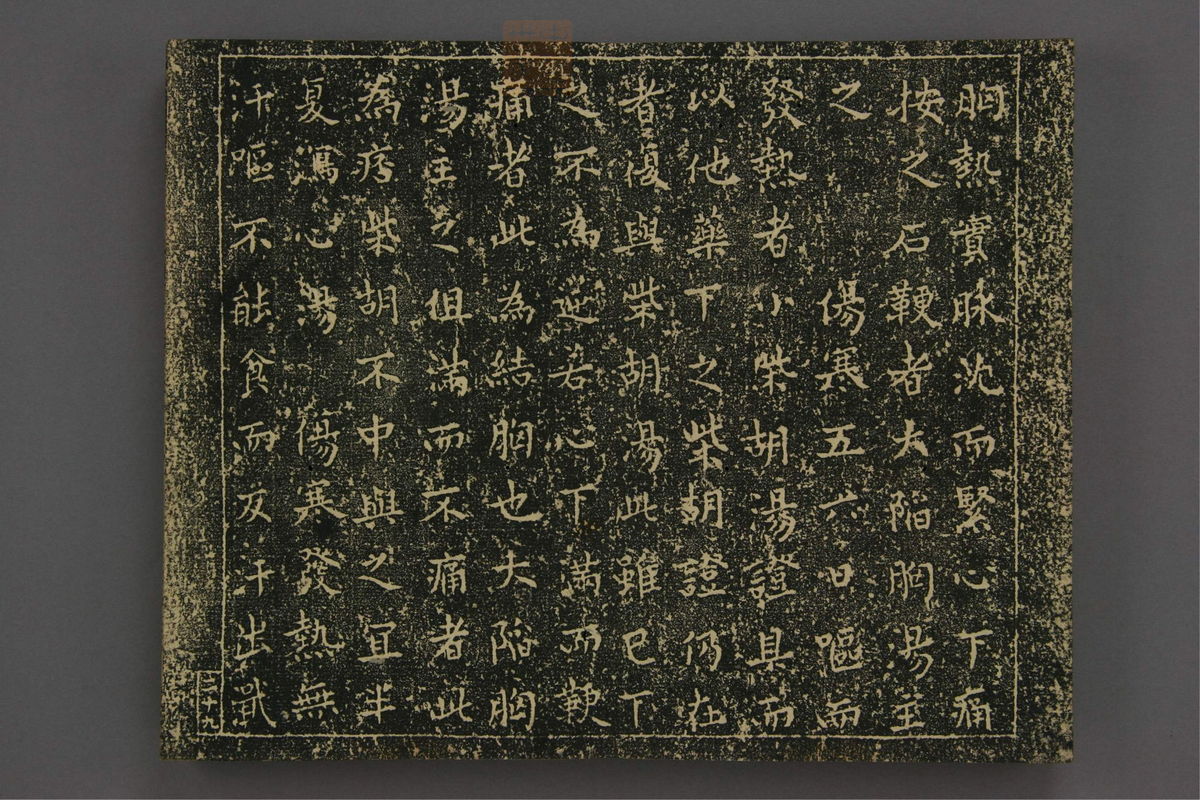 胸熱實脉沈而緊心下痛
按之石鞕者大陷胸湯主
之 傷寒五六日嘔而
發熱者小柴胡湯證具而
以他藥下之柴胡證仍在
者復與柴胡湯此雖已下
之不為逆若心下滿而鞕
痛者此為結胸也大陷胸
湯主之但滿而不痛者此
為痞柴胡不中與之宜半
夏瀉心湯 傷寒發熱無
汗嘔不能食而反汗出濈